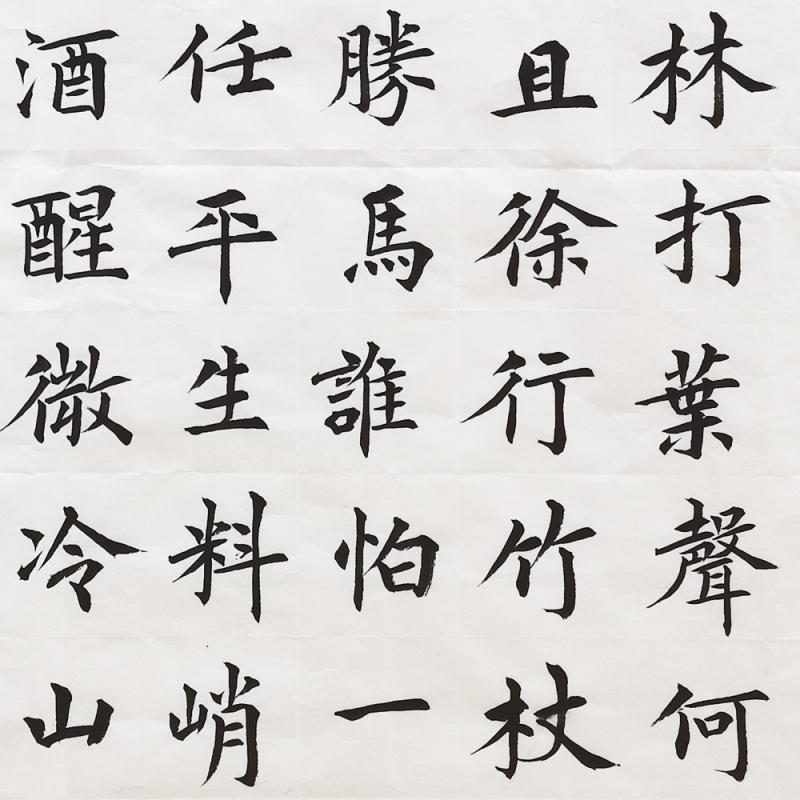 林打葉聲何
且徐行竹杖
勝馬誰怕一
任平生料峭
酒醒微冷山